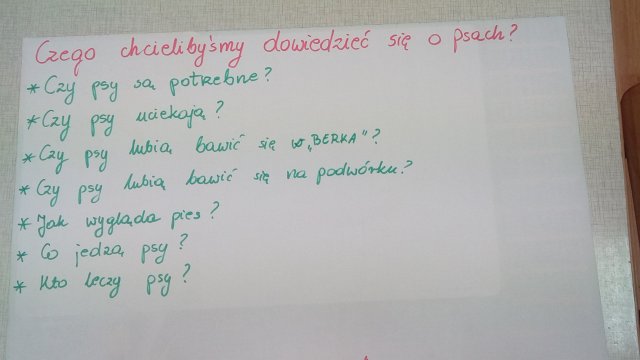 Czego chcielibyśmy dowiedzieć się o psach?
* Czy psy są potrzebne?
* Czy psy uciekają?
* Czy psy lubią bawić się w „BERKA"?
* Czy psy lubią bawić się na podwórku?
* Jak wygląda pies?
* Co jedzą psy?
* Kto leczy psy?